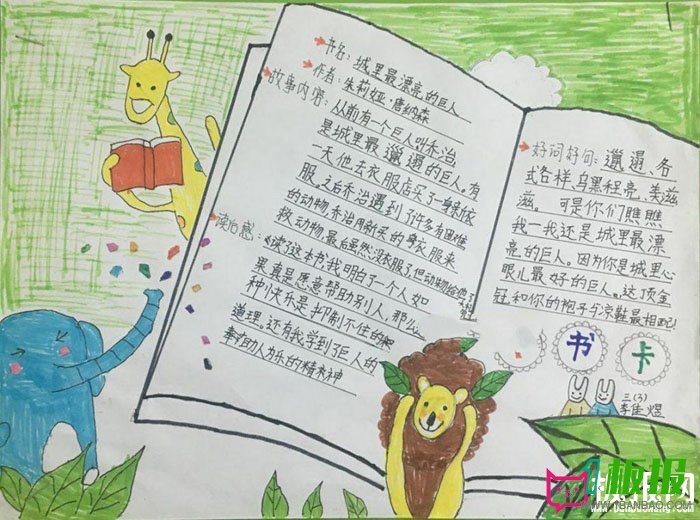 书名：城里最漂亮的巨人
作者：朱莉娅·唐纳森
故事内容：从前有一个巨人叫乔治，
是城里最邋遢的巨人。有
一天他去衣服店买了一身新衣
服。之后乔治遇到了许多有困难
的动物，乔治用新买的
救动物，最后虽然没衣服了但动物给他了
读后感：《读了这本书，我明白了一个人如
果真是愿意帮助别人，那么
种快乐是抑制不住的
道理。还有我学到了巨人的
助人为乐的精神
好词好句：邋遢、各
式各样、乌黑程亮、美滋
滋。可是你们瞧瞧，
我一我还是城里最漂
亮的巨人。因为你是城里心
眼儿最好的巨人。这顶金
冠，和你的袍子与凉鞋最相配！
书 卡
三(3)
李佳煜
板报网
WWW.1BANBAO.COM